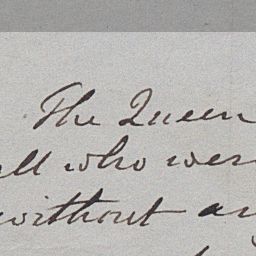 The Queen
all who were
without any